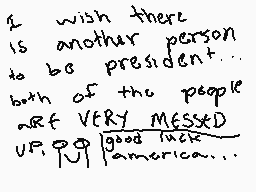 I wish there
is another person
to be president...
both of the people
aRE VERY MESSED
UP.
good luck
america...